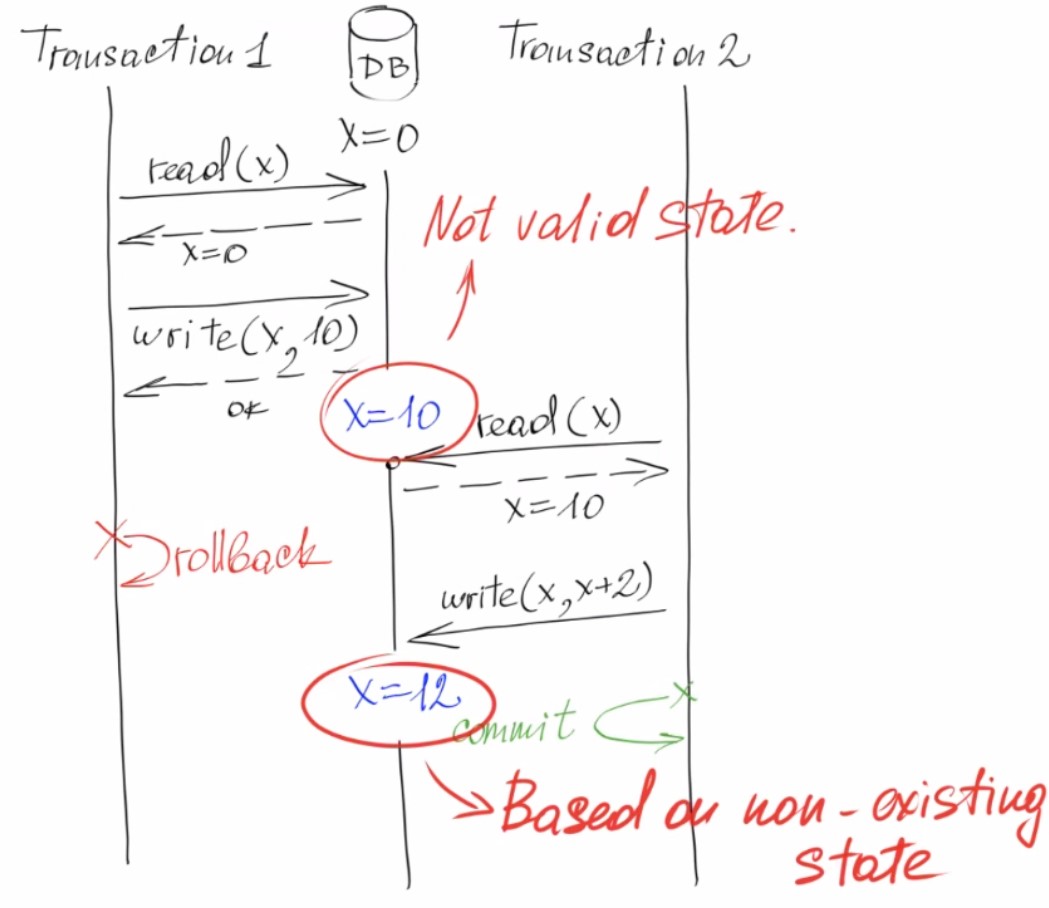 Transaction 1
DB
Transaction 2
x=0
read(x)
x=0
Not valid state.
write(x, 10)
ok
x=10
read(x)
x=10
rollback
write(x, x+2)
x=12
commit
Based on non-existing
state